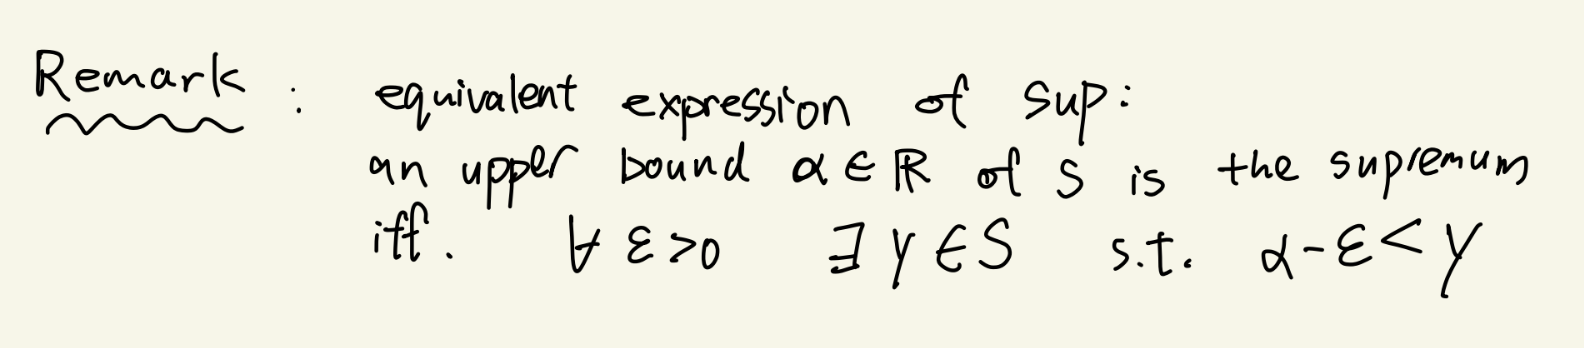 Remark : equivalent expression of sup:
an upper bound α ∈ ℝ of S is the supremum
iff. ∀ ε > 0 ∃ y ∈ S s.t. α - ε < y